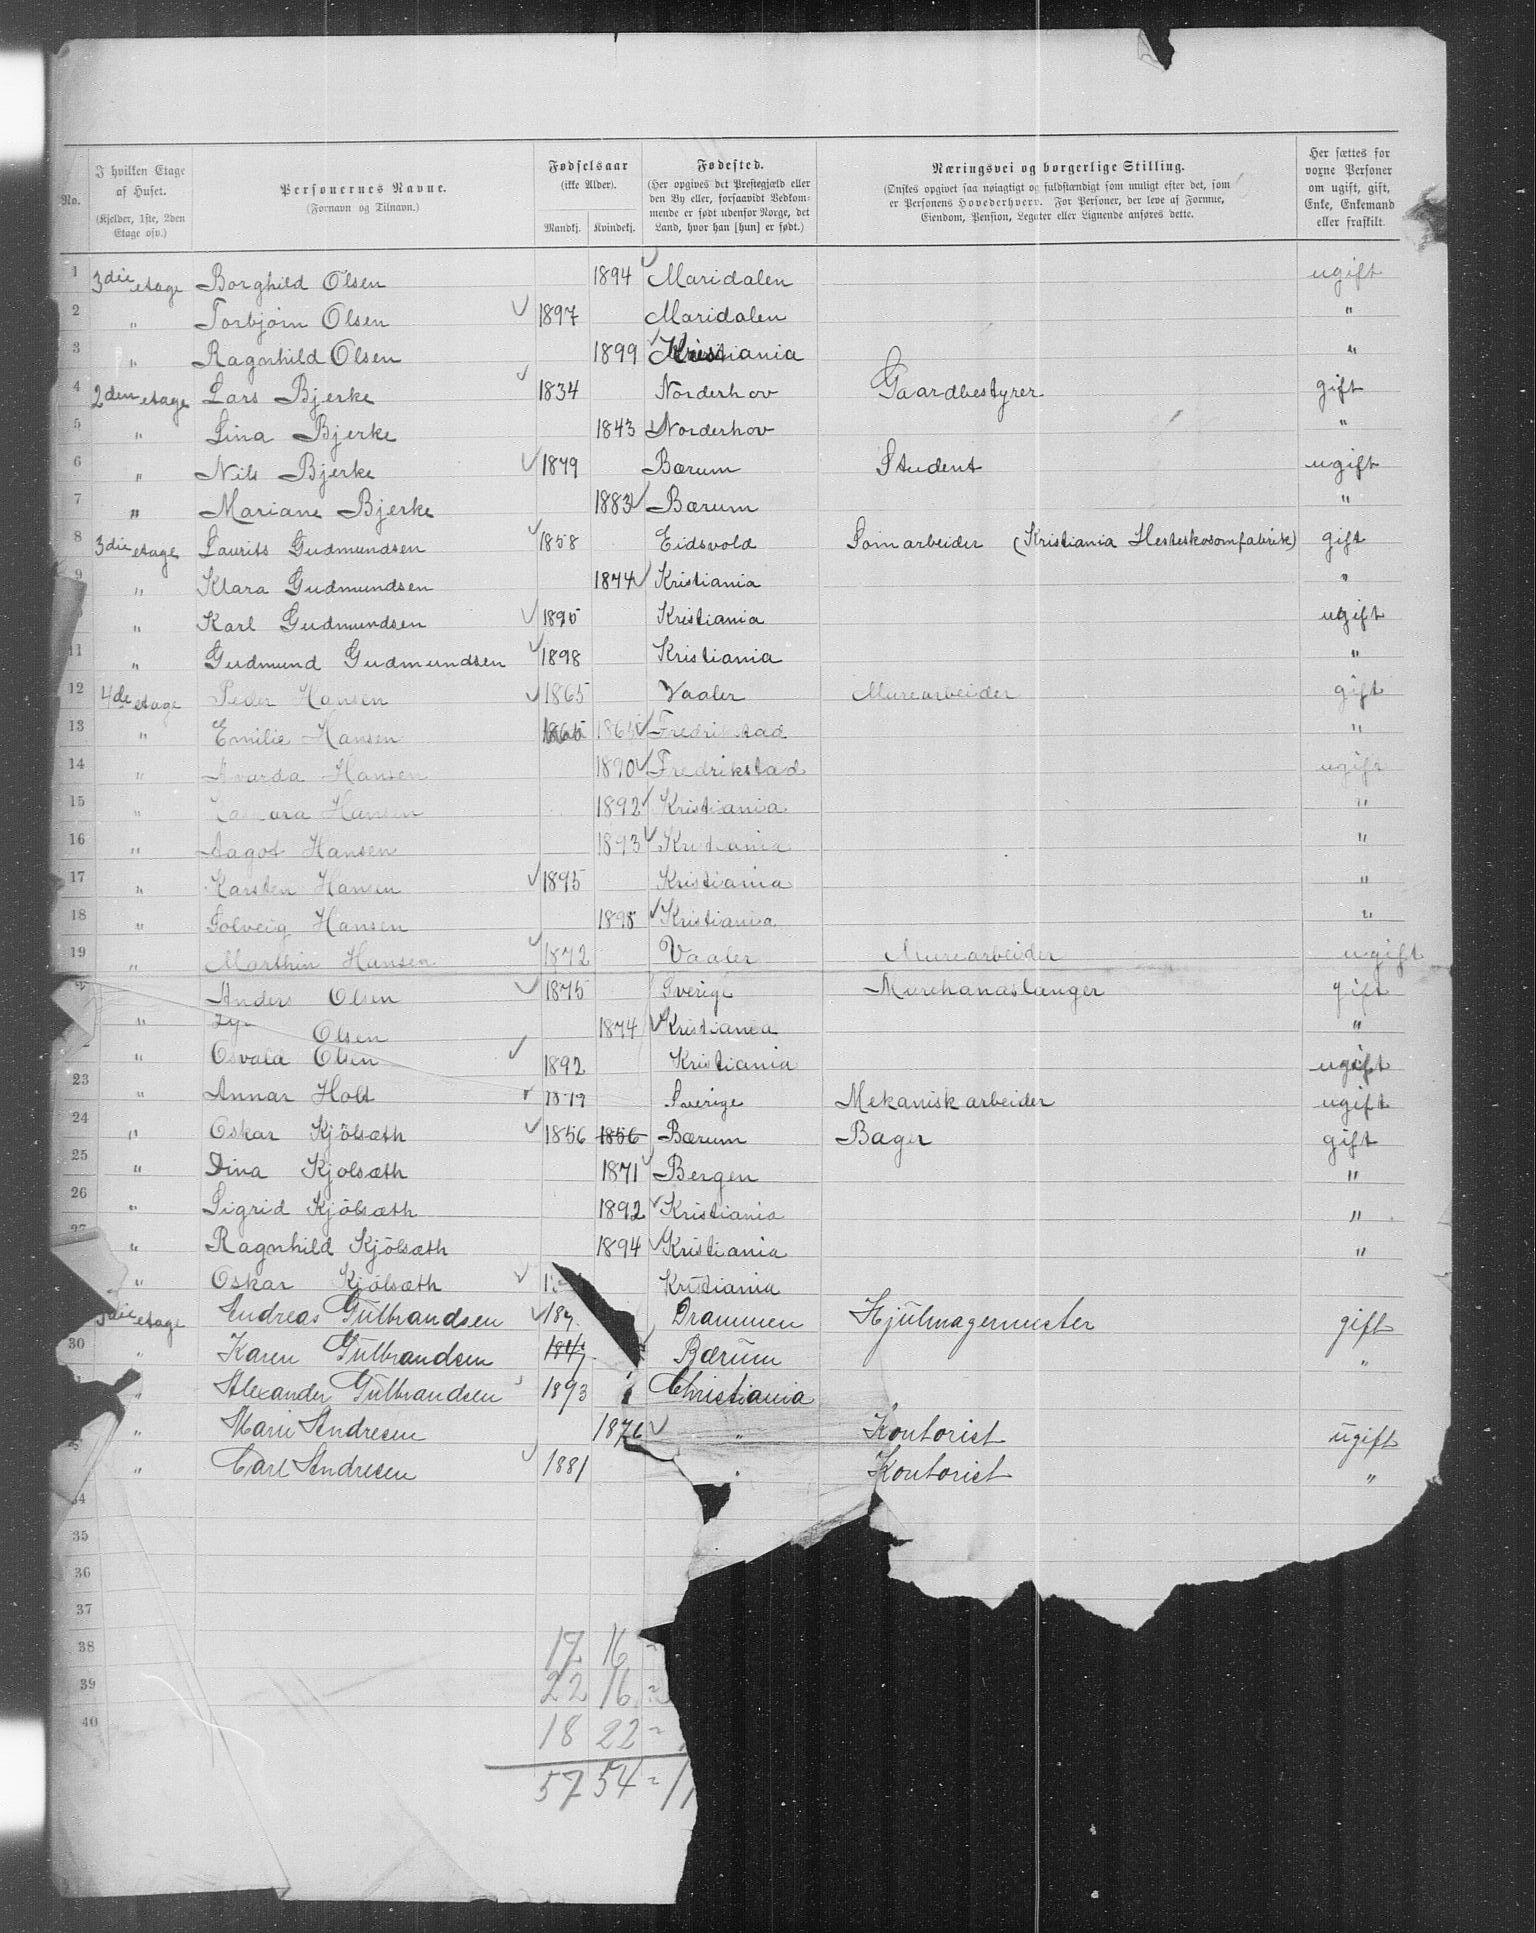 No. I hvilken Etage af Huset. (Kjelder, 1ste, 2den Etage osv.) Personernes Navne. (Fornavn og Tilnavn.) Fødselsaar (ikke Alder). Mandkj. Kvindekj. Fødested. (Her opgives det Prestegjæld eller den By eller, forsaavidt Vedkommende er født udenfor Norge, det Land, hvor han [hun] er født.) Næringsvei og borgerlige Stilling. (Ønskes opgivet saa nøiagtigt og fuldstændigt som muligt efter det, som er Personens Hovederhverv. For Personer, der leve af Formue, Eiendom, Pension, Legater eller Lignende anføres dette. Her sættes for voxne Personer om ugift, gift, Enke, Enkemand eller fraskilt.
1 3die etage Borghild Olsen 1894 Maridalen ugift
2 " Torbjørn Olsen 1897 Maridalen "
3 " Ragnhild Olsen 1899 Kristiania "
4 2den etage Lars Bjerke 1834 Norderhov Gaardbestyrer gift
5 " Lina Bjerke 1843 Norderhov "
6 " Nils Bjerke 1879 Bærum Student ugift
7 " Mariane Bjerke 1883 Bærum "
8 3die etage Laurits Gudmundsen 1858 Eidsvold Somarbeider (Kristiania Hesteskosomfabrik) gift
9 " Klara Gudmundsen 1874 Kristiania "
" Karl Gudmundsen 1895 Kristiania ugift
11 " Gudmund Gudmundsen 1898 Kristiania "
12 4de etage Peder Hansen 1865 Vaaler Murearbeider gift
13 " Emilie Hansen 1865 Fredrikstad "
14 " Hansen 1890 Fredrikstad ugift
15 " Hansen 1892 Kristiania "
16 " Aagot Hansen 1893 Kristiania "
17 " Karsten Hansen 1895 Kristiania "
18 " Solveig Hansen 1898 Kristiania "
19 " Marthin Hansen 1872 Vaaler Murearbeider ugift
Anders Olsen 1875 Sverige Murehanaslanger gift
" Olsen 1874 Kristiania "
" Osvald Olsen 1892 Kristiania ugift
23 " Annar Holt 1879 Sverige Mekanisk arbeider ugift
24 " Oskar Kjölsæth 1856 1856 Bærum Bager gift
25 " Dina Kjolsæth 1871 Bergen "
26 " Sigrid Kjölsæth 1892 Kristiania "
27 " Ragnhild Kjölsæth 1894 Kristiania "
" Oskar Kjölsæth Kristiania
3die etage Andreas Gulbrandsen 187 Drammen Hjülmagermester gift
30 " Karen Gulbrandsen 184 Bærüm "
" Alexander Gulbrandsen 1893 Christiania
" Marie Andresen 1876 " Kontorist ugift
" Carl Andresen 1881 " Kontorist "
34
35
36
37
38 17 16 =
39 22 16 =
40 18 22 =
57 54 = 11